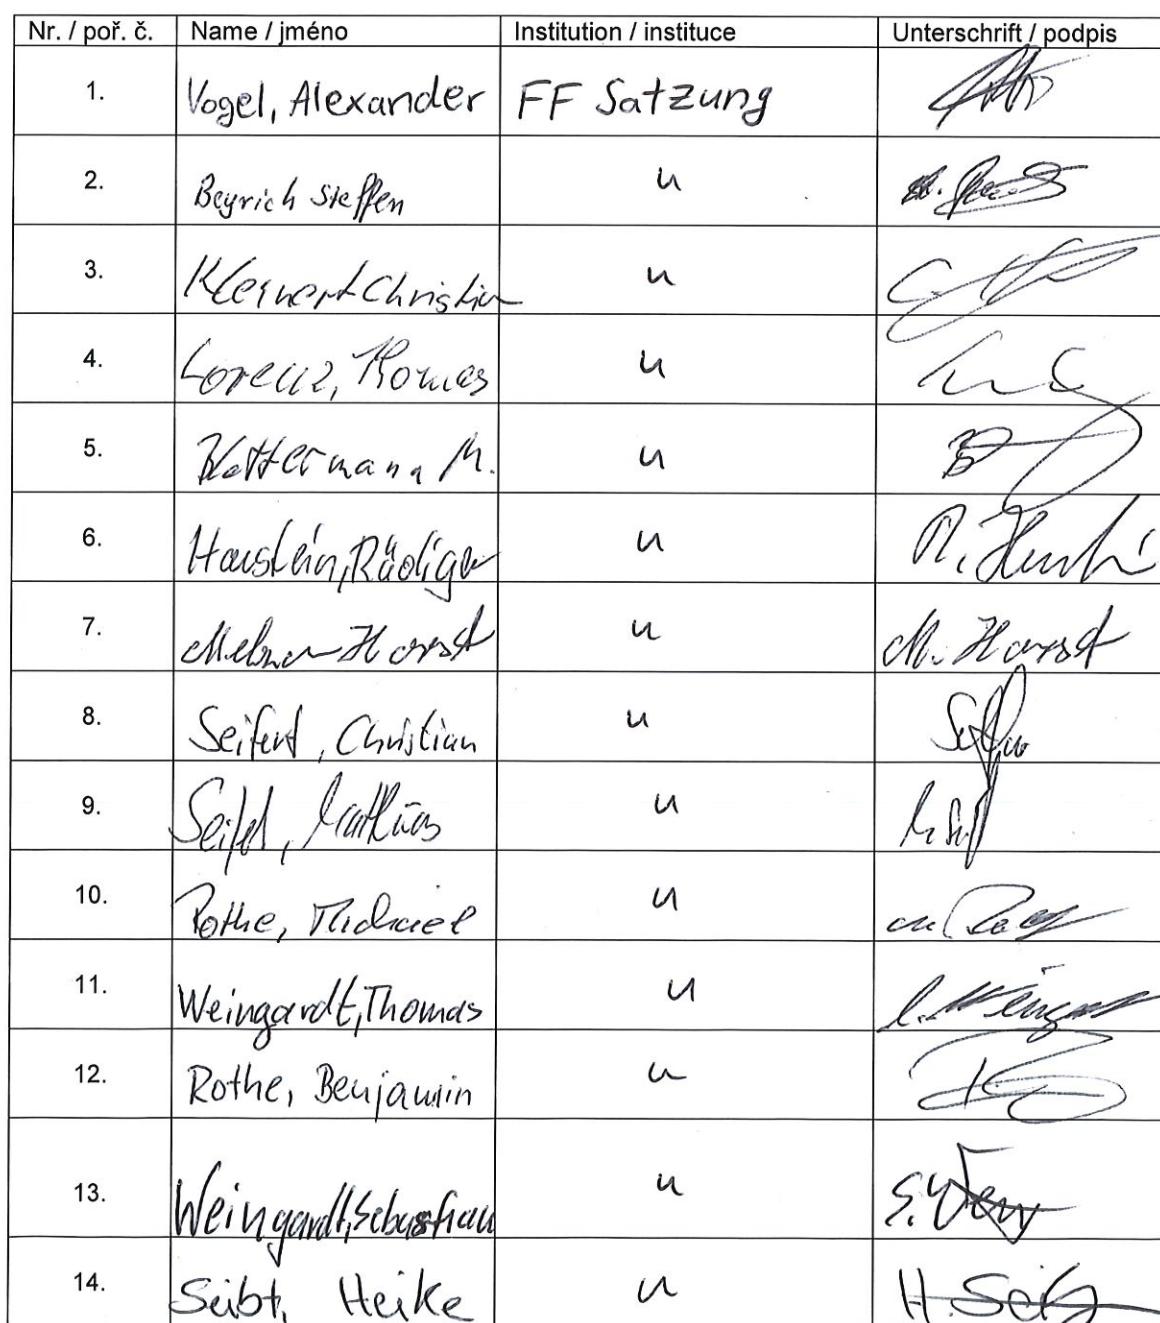 Nr. / poř. č. Name / jméno Institution / instituce Unterschrift / podpis
1. Vogel, Alexander FF Satzung
2. Beyrich Steffen u
3. Kleinert Christian u
4. Lorenz, Thomas u
5. M. u
6. Haustein, Rüdiger u
7. Horst u M. Horst
8. Seifert, Christian u
9. Seifert, Mathias u
10. Rothe, Michael u
11. Weingardt, Thomas u
12. Rothe, Benjamin u
13. Weingardt, Sebastian u
14. Seibt, Heike u H.